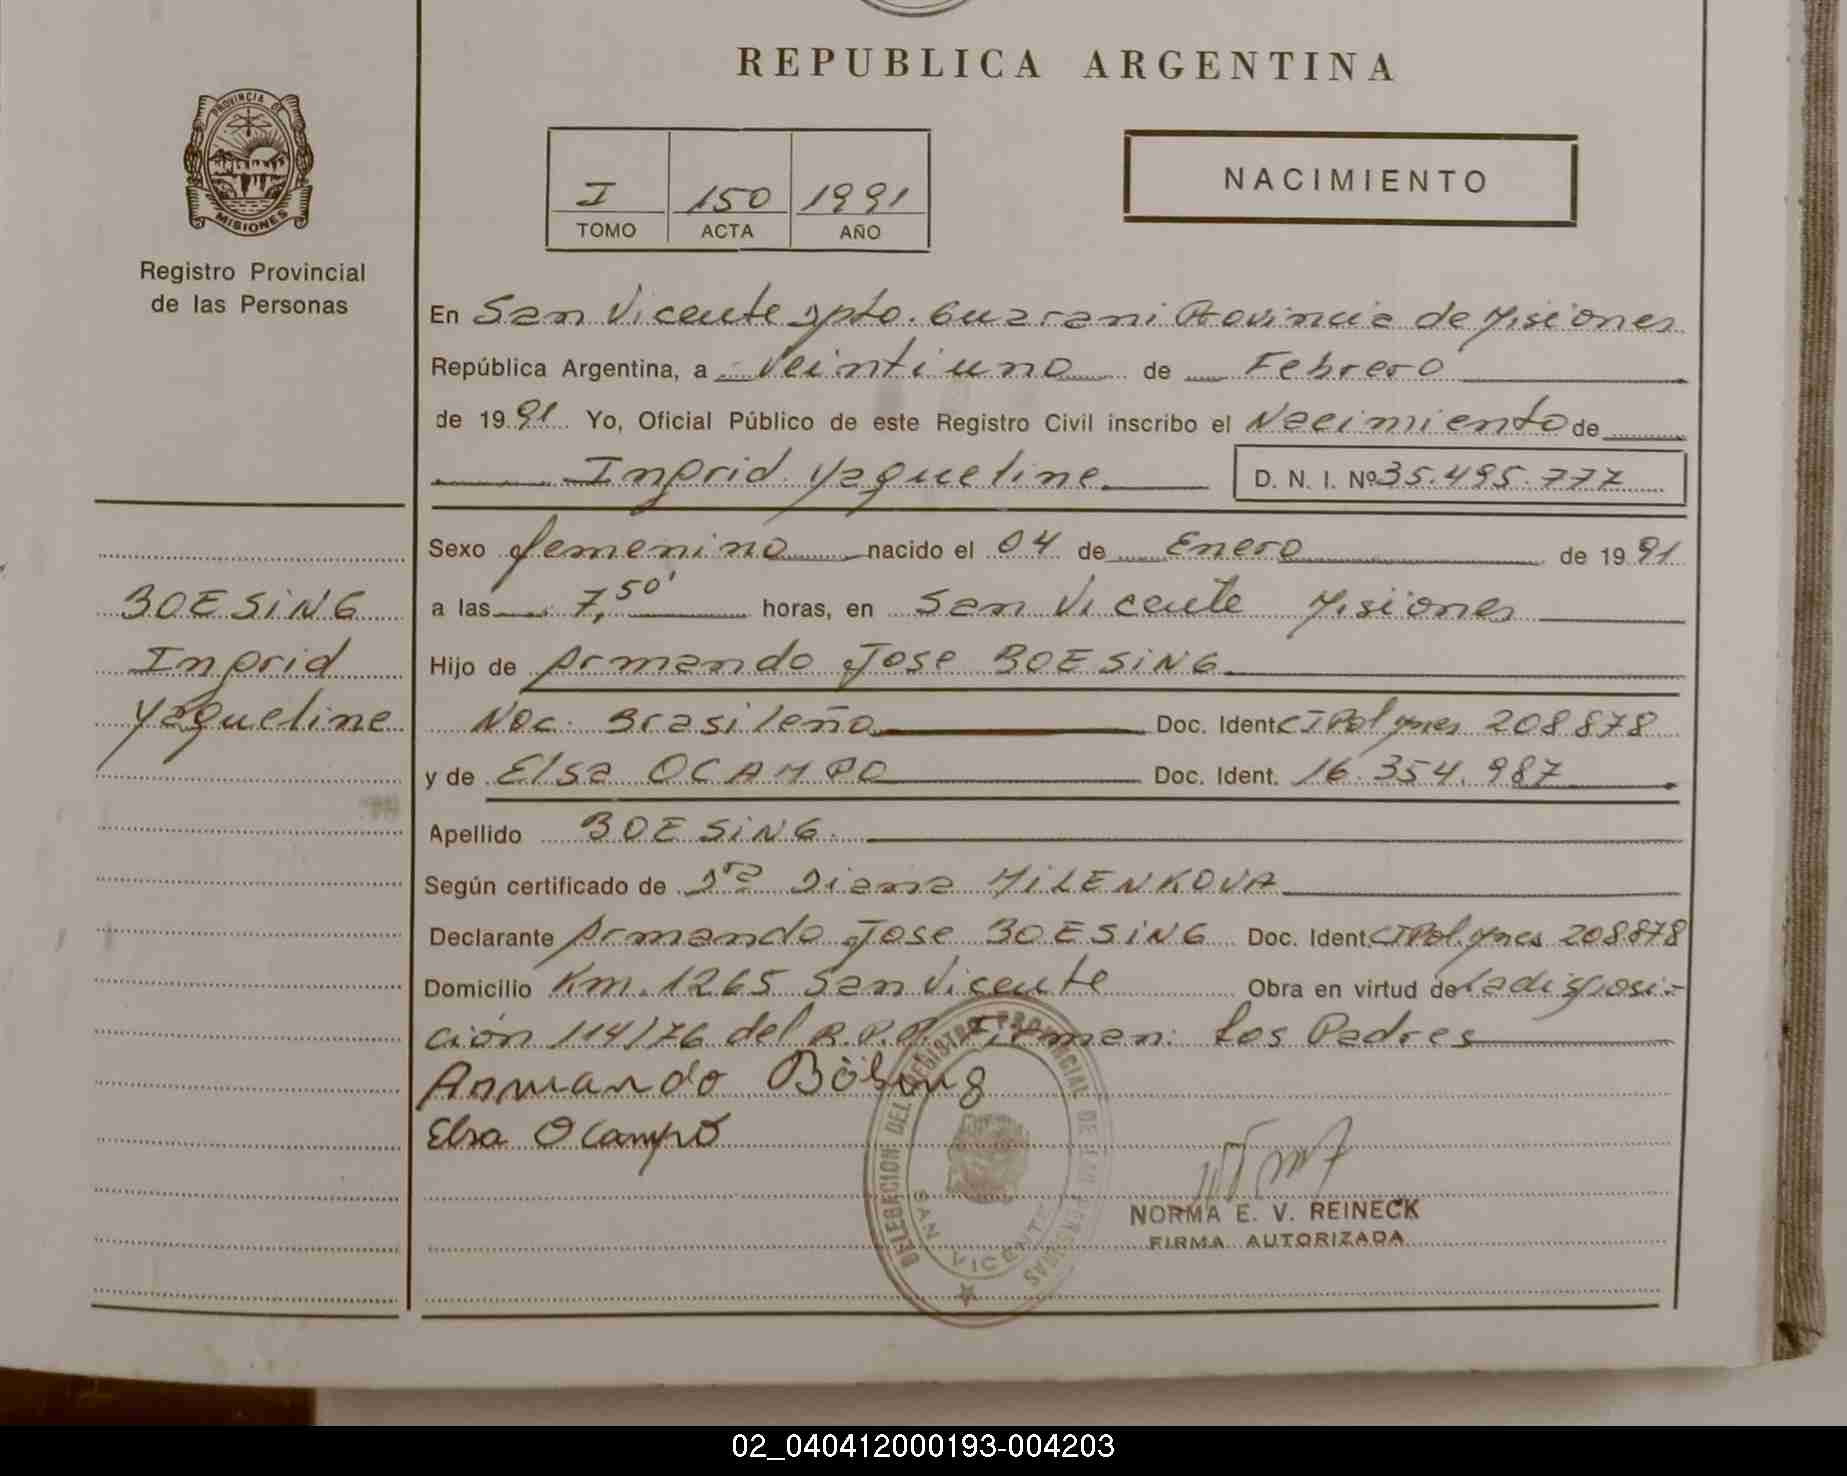 REPUBLICA ARGENTINA
PROVINCIA DE
MISIONES
Registro Provincial
de las Personas
I 150 1991
TOMO ACTA AÑO
NACIMIENTO
En San Vicente Dpto. Guarani Provincia de Misiones
República Argentina, a Veintiuno de Febrero
de 1991 Yo, Oficial Público de este Registro Civil inscribo el Nacimiento de
Ingrid Yaqueline D. N. I. Nº 35.495.777
Sexo femenino nacido el 04 de Enero de 1991
a las 7,50' horas, en San Vicente Misiones
Hijo de Armando Jose BOESiNG
Nac. Brasileño Doc. Ident. CI Pol Mnes 208878
y de Elsa OCAMPO Doc. Ident. 16.354.987
Apellido BOESiNG
Según certificado de Dra Diana MiLENKOVA
Declarante Armando Jose BOESiNG Doc. Ident. CI Pol. Mnes 208878
Domicilio Km. 1265 San Vicente Obra en virtud de la disposi-
ción 114/76 del R.P.P. Firman: Los Padres
Armando Bösing
Elsa Ocampo
BOESiNG
Ingrid
Yaqueline
DELEGACION DEL REGISTRO PROVINCIAL DE LAS PERSONAS
SAN VICENTE
NORMA E. V. REINECK
FIRMA AUTORIZADA
02_040412000193-004203